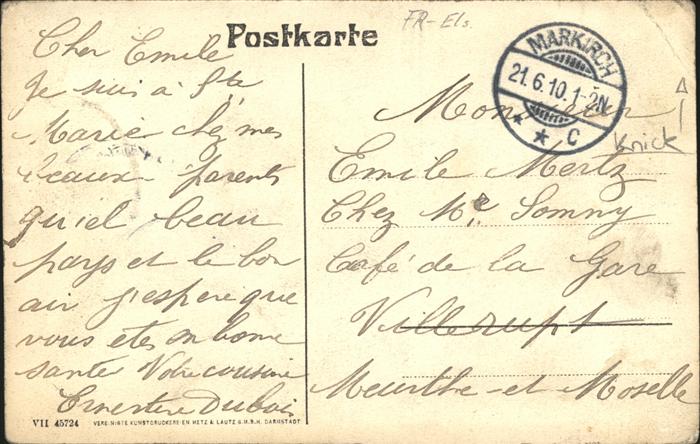 Postkarte
FR-Els.
MARKIRCH
21.6.10.1-2N
* * C
Knick
Cher Emile
Je suis à Ste
Marie chez mes
beaux parents
quel beau
pays et le bon
air j'espere que
vous etes en bone
santer Votre cousine
Ernestine Dubois
Monsieur
Emile Mertz
Chez Mr Sommy
Café de la Gare
Villerupt
Meurthe-et-Moselle
VII 45724 VEREINIGTE KUNSTDRUCKEREIEN METZ & LAUTZ G.M.B.H. DARMSTADT